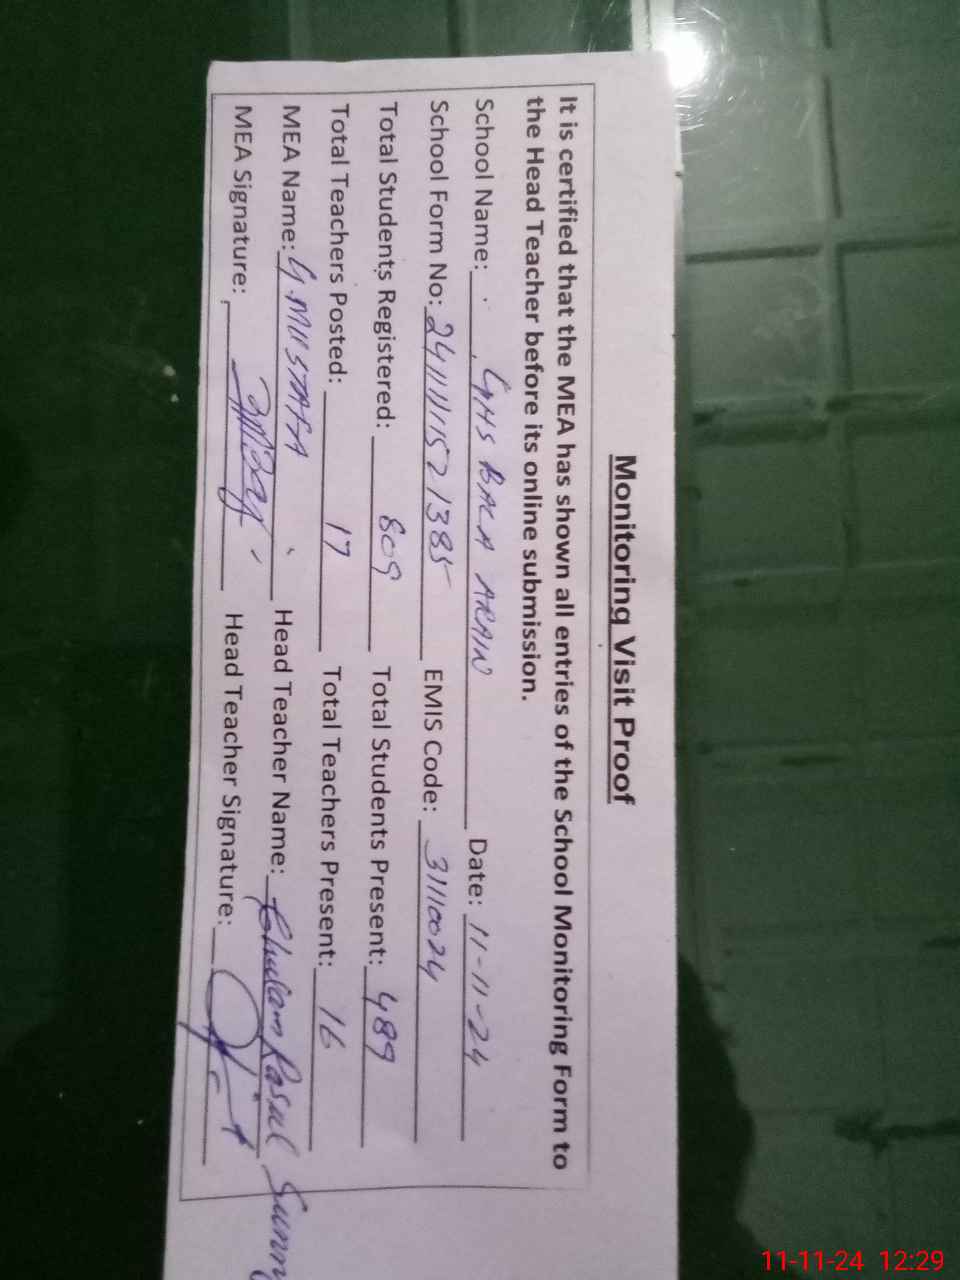 Monitoring Visit Proof
It is certified that the MEA has shown all entries of the School Monitoring Form to
the Head Teacher before its online submission.
School Name: GHS BALA ARAIN Date: 11-11-24
School Form No: 241111521385 EMIS Code: 31110024
Total Students Registered: 809 Total Students Present: 489
Total Teachers Posted: 17 Total Teachers Present: 16
MEA Name: G. MUSTAFA Head Teacher Name: Ghulam Rasul
MEA Signature: Head Teacher Signature:
11-11-24 12:29